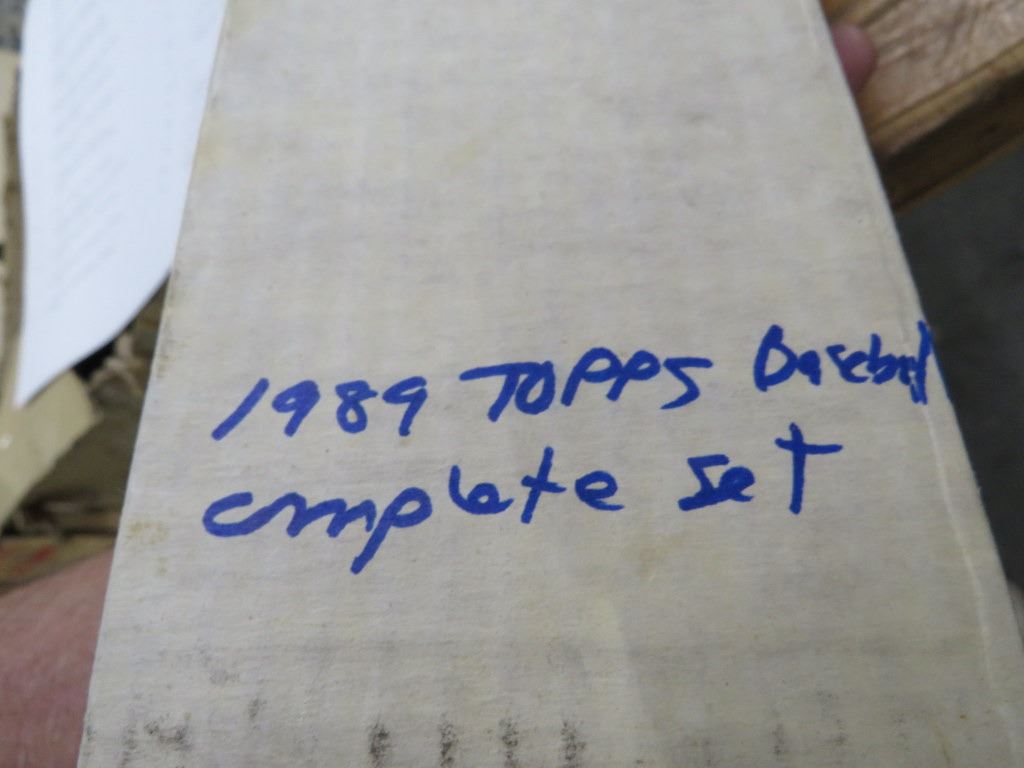 1989 TOPPS Baseball
complete set